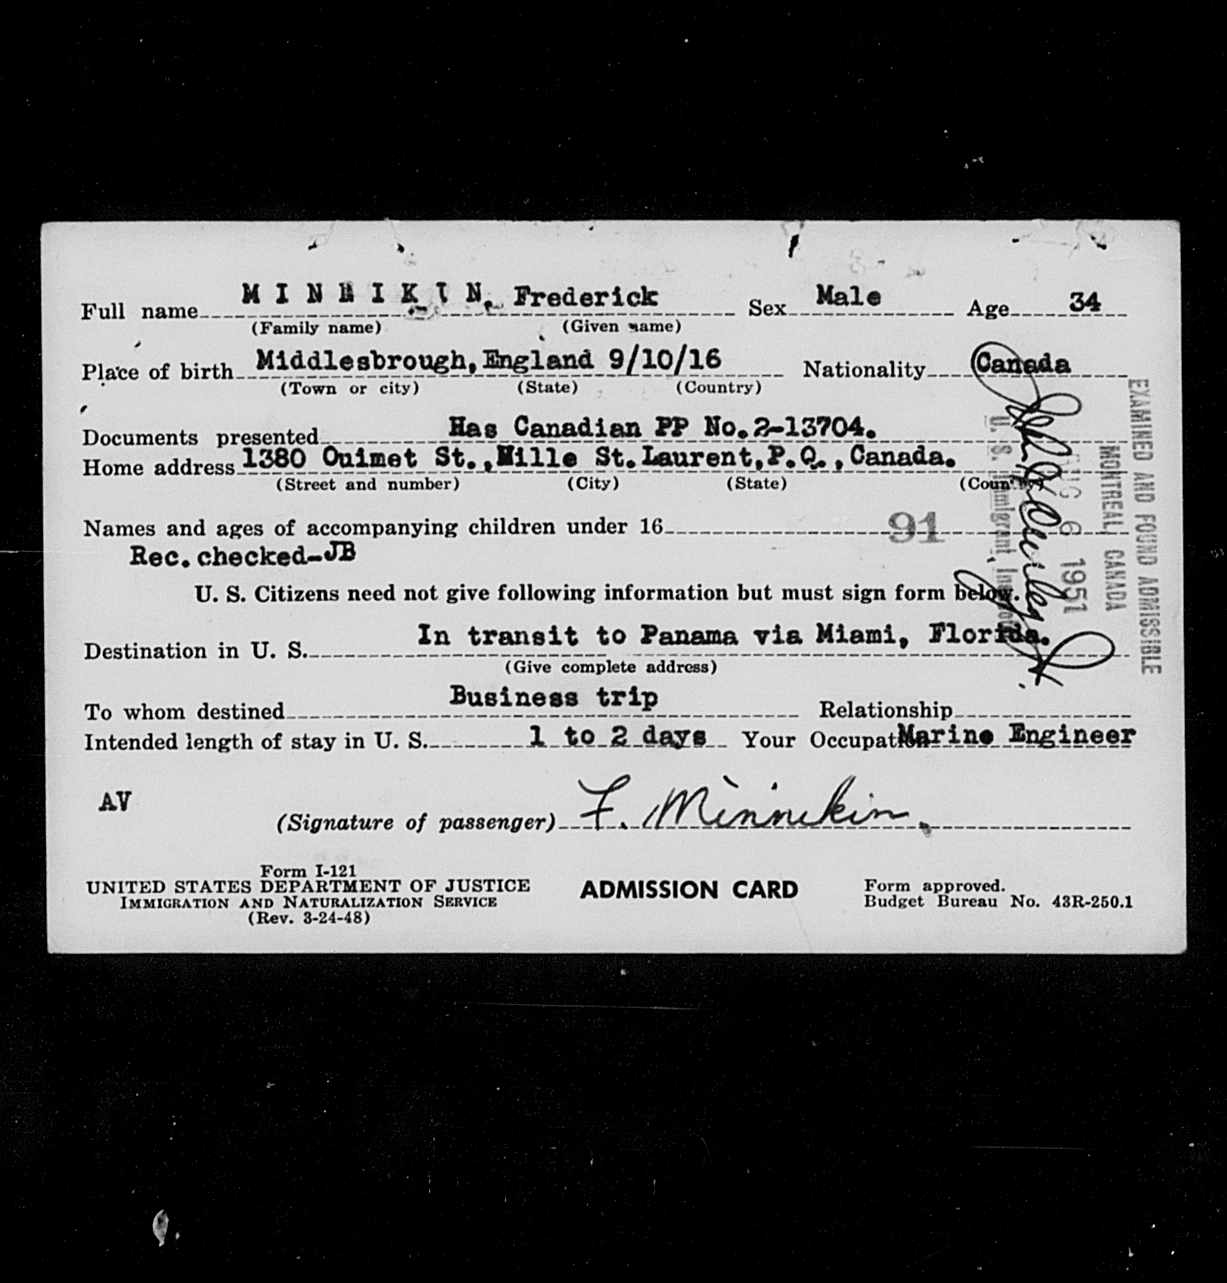 Full name M I N N I K I N, Frederick Sex Male Age 34
(Family name) (Given name)
Place of birth Middlesbrough, England 9/10/16 Nationality Canada
(Town or city) (State) (Country)
Documents presented Has Canadian PP No.2-13704.
Home address 1380 Ouimet St., Mille St.Laurent,P.Q., Canada.
(Street and number) (City) (State) (Country)
Names and ages of accompanying children under 16 91
Rec. checked-JB
U. S. Citizens need not give following information but must sign form below.
Destination in U. S. In transit to Panama via Miami, Florida.
(Give complete address)
To whom destined Business trip Relationship
Intended length of stay in U. S. 1 to 2 days Your Occupation Marine Engineer
AV
(Signature of passenger) F. Minnikin.
Form I-121
UNITED STATES DEPARTMENT OF JUSTICE
IMMIGRATION AND NATURALIZATION SERVICE
(Rev. 3-24-48)
ADMISSION CARD
Form approved.
Budget Bureau No. 43R-250.1
EXAMINED AND FOUND ADMISSIBLE
MONTREAL, CANADA
AUG 6 1951
U. S. Immigrant Inspector